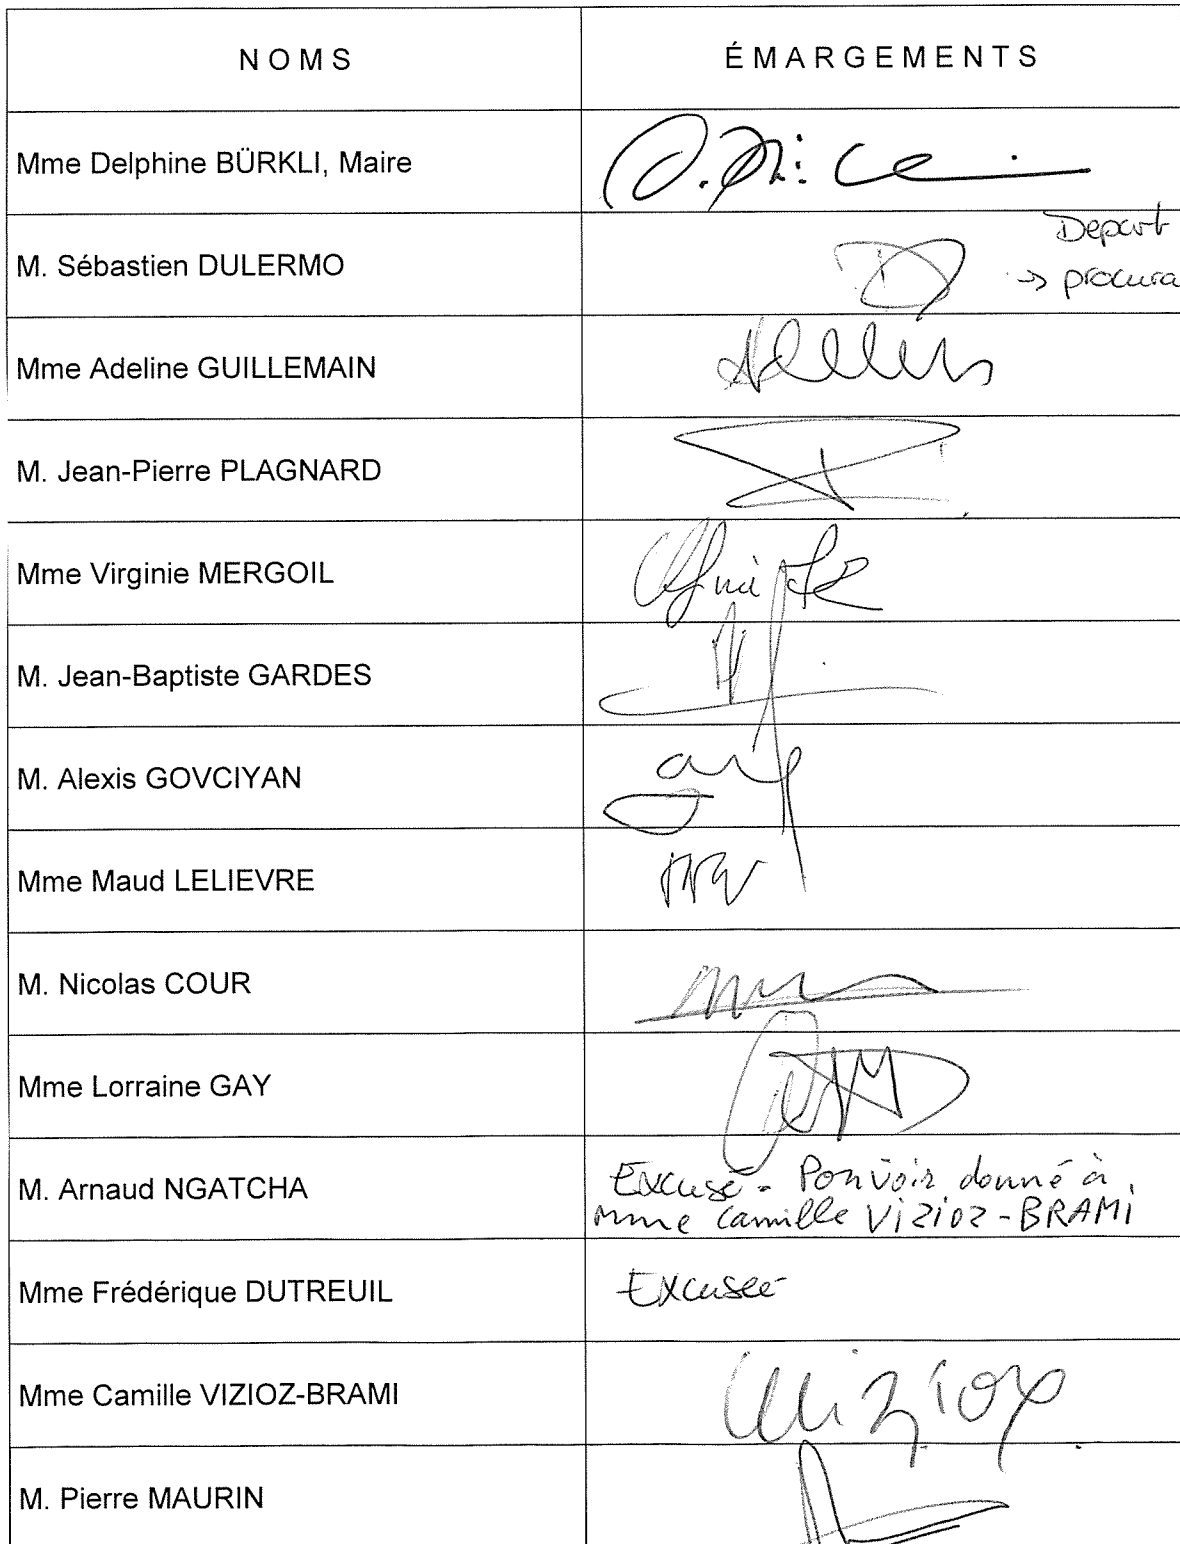 NOMS
ÉMARGEMENTS
Mme Delphine BÜRKLI, Maire
M. Sébastien DULERMO
Depart
→ procura
Mme Adeline GUILLEMAIN
M. Jean-Pierre PLAGNARD
Mme Virginie MERGOIL
M. Jean-Baptiste GARDES
M. Alexis GOVCIYAN
Mme Maud LELIEVRE
M. Nicolas COUR
Mme Lorraine GAY
M. Arnaud NGATCHA
Excusé - Pouvoir donné à
Mme Camille VIZIOZ-BRAMI
Mme Frédérique DUTREUIL
Excusée
Mme Camille VIZIOZ-BRAMI
M. Pierre MAURIN